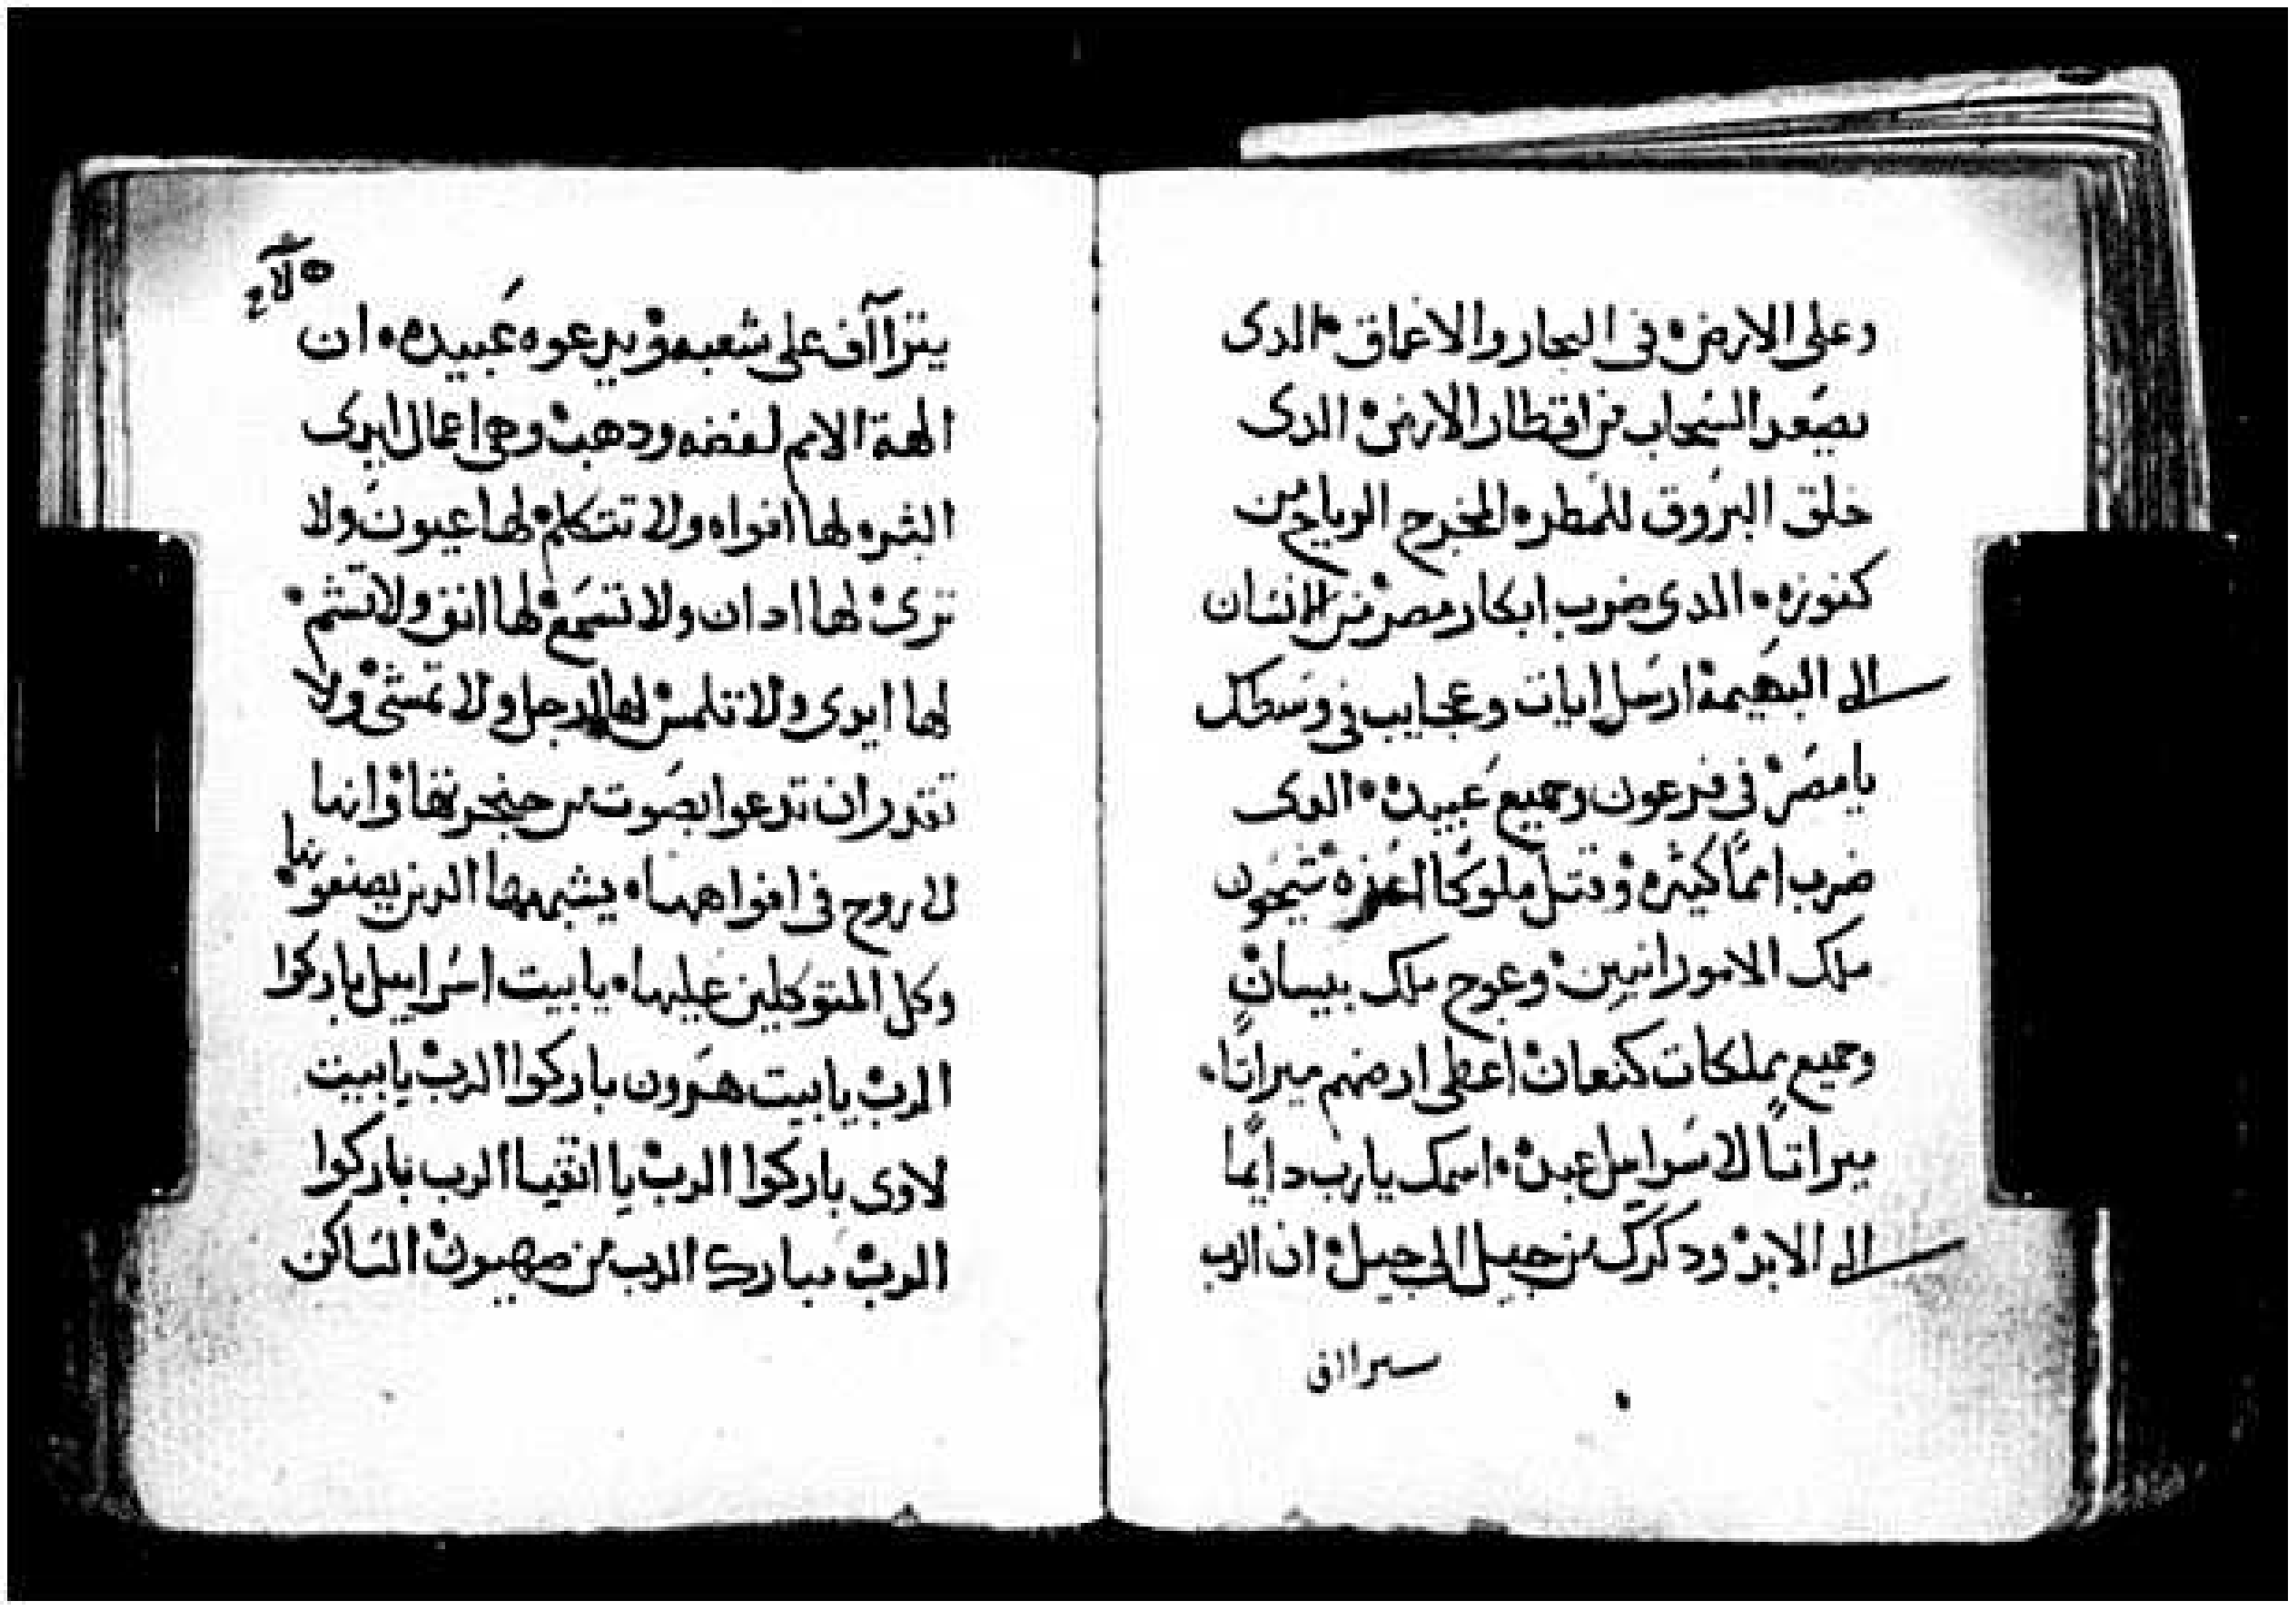 وعلى الارض، في البحار والاعماق، الدى
يصعد السحاب من اقطار الارض، الدى
خلق البروق للمطر، المخرج الرياح من
كنوزه، الدى ضرب ابكار مصر، من الانسان
الى البهيمه، ارسل ايات وعجايب في وسطك
يا مصر، في فرعون وجميع عبيده، الدى
ضرب امما كثيره، وقتل ملوكا اعزه، شيحون
ملك الامورانيين، وعوج ملك بيسان
وجميع مملكات كنعان، اعطى ارضهم ميراتا،
ميراتا لاسراييل عبده، اسمك يارب دايما
الى الابد، ودكرك من جيل الى جيل، ان الرب
يتراأف على شعبه، ويدعوه عبيده، ان
الهة الامم لفضه ودهب، وهي اعمال ايدى
البشر، لها افواه ولا تتكلم، لها عيون ولا
ترى، لها ادان ولا تسمع، لها انف ولا تشم،
لها ايدى ولا تلمس، لها ارجل ولا تمشى، ولا
تقدر ان تدعوا بصوت من حنجرتها، وانها
لا روح في افواهها، يشبهها الدين يصنعونها،
وكل المتوكلين عليها، يا بيت اسراييل باركوا
الرب، يا بيت هرون باركوا الرب، يا بيت
لاوى باركوا الرب، يا اتقيا الرب باركوا
الرب، مبارك الرب من صهيون، الساكن